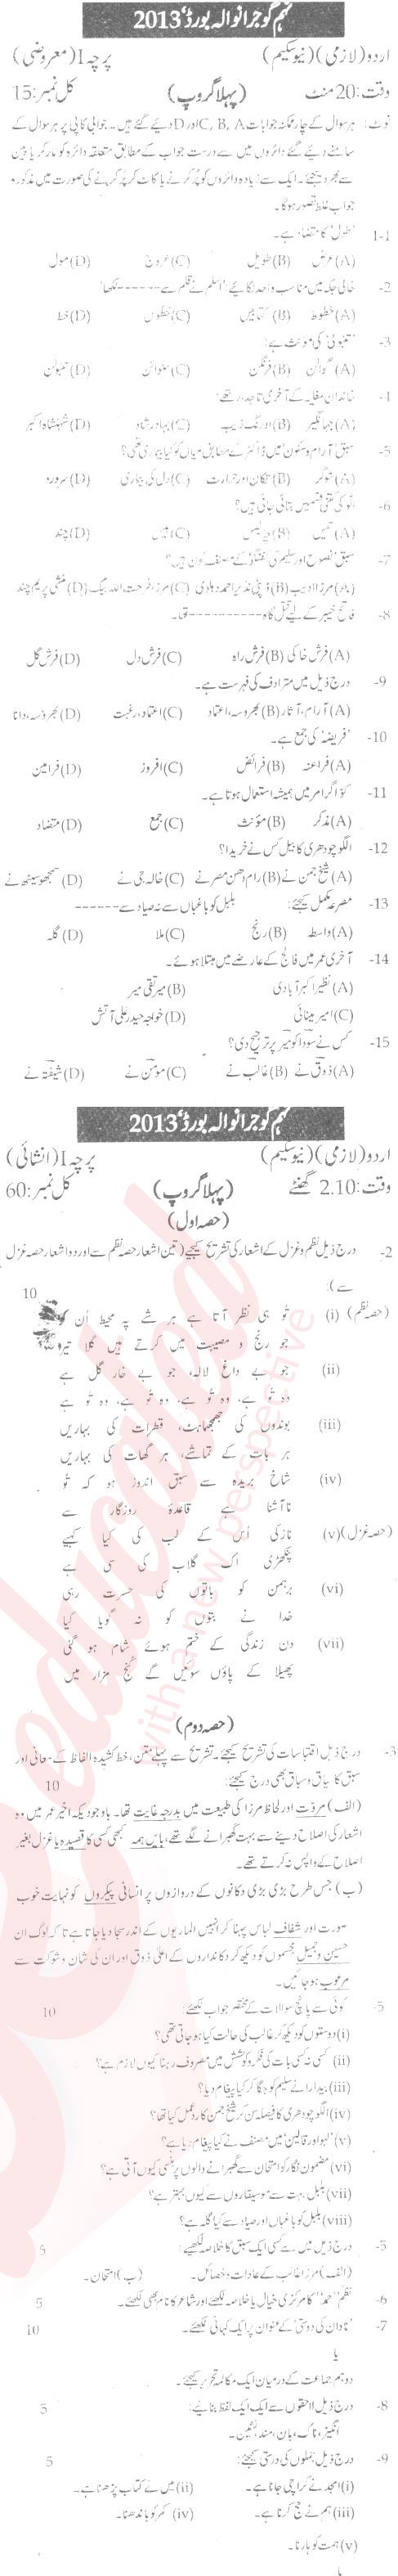 نہم گوجرانوالہ بورڈ 2013ء
اردو (لازمی) (نیو سکیم) پرچہ I (معروضی)
وقت: 20 منٹ (پہلا گروپ) کل نمبر: 15
نوٹ: ہر سوال کے چار ممکنہ جوابات C, B, A اور D دیئے گئے ہیں۔ جوابی کاپی پر ہر سوال کے
سامنے دیئے گئے دائروں میں سے درست جواب کے مطابق متعلقہ دائرہ کو مارکر یا پین
سے بھر دیجئے۔ ایک سے زیادہ دائروں کو پُر کرنے یا کاٹ کر پُر کرنے کی صورت میں مذکورہ
جواب غلط تصور ہوگا۔
1-1 'طول' کا متضاد ہے۔
(A) عرض (B) طویل (C) عروج (D) مول
2- خالی جگہ میں مناسب واحد لگائیے 'اسلم نے قلم سے ------ لکھا'
(A) خطوط (B) کتابیں (C) خطوں (D) خط
3- 'تنبولی' کی مونث ہے:
(A) گوالن (B) فرنگن (C) حلوائن (D) تنبولن
4- خاندان مغلیہ کے آخری تاجدار تھے:
(A) جہانگیر (B) اورنگ زیب (C) بہادر شاہ (D) شہنشاہ اکبر
5- سبق 'آرام و سکون' میں ڈاکٹر کے مطابق میاں کو کیا بیماری تھی؟
(A) شوگر (B) تکان اور حرارت (C) دل کی بیماری (D) سر درد
6- اُلّو کی کتنی قسمیں بتائی جاتی ہیں؟
(A) تیس (B) چالیس (C) بیس (D) چند
7- سبق 'نصوح اور سلیم کی گفتگو' کے مصنف کون ہیں؟
(A) مرزا ادیب (B) ڈپٹی نذیر احمد دہلوی (C) مرزا فرحت اللہ بیگ (D) منشی پریم چند
8- فاتح خیبر کے لیے قتل گاہ ---------- تھا۔
(A) فرش خاکی (B) فرش راہ (C) فرش دل (D) فرش گل
9- درج ذیل میں مترادف کی فہرست ہے۔
(A) آرام، آثار (B) بھروسہ، اعتماد (C) اعتماد، رغبت (D) بھروسہ، دانا
10- 'فریضہ' کی جمع ہے۔
(A) فراعنہ (B) فرائض (C) افروز (D) فرامین
11- کوّا گرامر میں ہمیشہ استعمال ہوتا ہے۔
(A) مذکر (B) مؤنث (C) جمع (D) متضاد
12- الگو چودھری کا بیل کس نے خریدا؟
(A) شیخ جمن نے (B) رام دھن مصر نے (C) خالہ جی نے (D) سمجھو سیٹھ نے
13- مصرعہ مکمل کیجئے: بلبل کو باغباں سے نہ صیاد سے ------
(A) واسطہ (B) رنج (C) ملا (D) گلہ
14- آخری عمر میں فالج کے عارضے میں مبتلا ہوئے۔
(A) نظیر اکبر آبادی (B) میر تقی میر
(C) امیر مینائی (D) خواجہ حیدر علی آتش
15- کس نے سودا کو میر پر ترجیح دی؟
(A) ذوق نے (B) غالب نے (C) مومن نے (D) شیفتہ نے
نہم گوجرانوالہ بورڈ 2013ء
اردو (لازمی) (نیو سکیم) پرچہ I (انشائی)
وقت: 2.10 گھنٹے (پہلا گروپ) کل نمبر: 60
(حصہ اول)
2- درج ذیل نظم و غزل کے اشعار کی تشریح کیجیے (تین اشعار حصہ نظم سے اور دو اشعار حصہ غزل
سے): 10
(حصہ نظم) (i) تُو ہی نظر آتا ہے ہر شے پہ محیط اُن کو
جو رنج و مصیبت میں کرتے ہیں گلا تیرا
(ii) جو بے داغ لالہ، جو بے خار گل ہے
وہ تُو ہے، وہ تُو ہے، وہ تُو ہے، وہ تُو ہے
(iii) بوندوں کی جھمجھماہٹ، قطرات کی بہاریں
ہر بات کے تماشے، ہر گھات کی بہاریں
(iv) شاخ بریدہ سے سبق اندوز ہو کہ تُو
ناآشنا ہے قاعدۂ روزگار سے
(حصہ غزل) (v) نازکی اُس کے لب کی کیا کہیے
پنکھڑی اک گلاب کی سی ہے
(vi) برہمن کو باتوں کی حسرت رہی
خدا نے بتوں کو نہ گویا کیا
(vii) دن زندگی کے ختم ہوئے شام ہو گئی
پھیلا کے پاؤں سوئیں گے کنج مزار میں
(حصہ دوم)
3- درج ذیل اقتباسات کی تشریح کیجئے۔ تشریح سے پہلے متن، خط کشیدہ الفاظ کے معانی اور
سبق کا سیاق و سباق بھی درج کیجئے: 10
(الف) مروّت اور لحاظ مرزا کی طبیعت میں بدرجہ غایت تھا۔ باوجودیکہ اخیر عمر میں وہ
اشعار کی اصلاح دینے سے بہت گھبرانے لگے تھے، بایں ہمہ کبھی کسی کا قصیدہ یا غزل بغیر
اصلاح کے واپس نہ کرتے تھے۔
(ب) جس طرح بڑی بڑی دکانوں کے دروازوں پر انسانی پیکروں کو نہایت خوب
صورت اور شفاف لباس پہنا کر انہیں الماریوں کے اندر سجا دیا جاتا ہے تاکہ لوگ ان
حسین و جمیل مجسموں کو دیکھ کر دکانداروں کے اعلیٰ ذوق اور ان کی شان و شوکت سے
مرعوب ہو جائیں۔
5- کوئی سے پانچ سوالات کے مختصر جواب لکھئے: 10
(i) دوستوں کو دیکھ کر غالب کی حالت کیا ہو جاتی تھی؟
(ii) کسی نہ کسی بات کی فکر و کوشش میں مصروف رہنا کیوں لازم ہے؟
(iii) بیدارا نے سلیم کو جگا کر کیا پیغام دیا؟
(iv) الگو چودھری کا فیصلہ سن کر شیخ جمن کا ردعمل کیا تھا؟
(v) 'لہو اور قالین' میں مصنف نے کیا پیغام دیا ہے؟
(vi) مضمون نگار کو امتحان سے گھبرانے والوں پر ہنسی کیوں آتی ہے؟
(vii) بلبل بہت سے موسیقاروں سے کیوں بہتر ہے؟
(viii) بلبل کو باغباں اور صیاد سے کیا گلہ ہے؟
5- درج ذیل میں سے کسی ایک سبق کا خلاصہ لکھیے: 5
(الف) مرزا غالب کے عادات و خصائل۔ (ب) امتحان۔
6- نظم ''حمد'' کا مرکزی خیال یا خلاصہ لکھئے اور شاعر کا نام بھی لکھئے۔ 5
7- 'نادان کی دوستی' کے عنوان پر ایک کہانی لکھئے۔ 10
یا
دوہم جماعت کے درمیان ایک مکالمہ تحریر کیجئے۔
8- درج ذیل لاحقوں سے ایک ایک لفظ بنائیے: 5
انگیز، ناک، بان، مند، نشین۔
9- درج ذیل جملوں کی درستی کیجئے: 5
(i) امجد نے کراچی جانا ہے۔ (ii) میں نے کتاب پڑھنا ہے۔
(iii) ہم نے حج کرنا ہے۔ (iv) کمر کو باندھنا۔
(v) ہمت کو ہارنا۔
یا